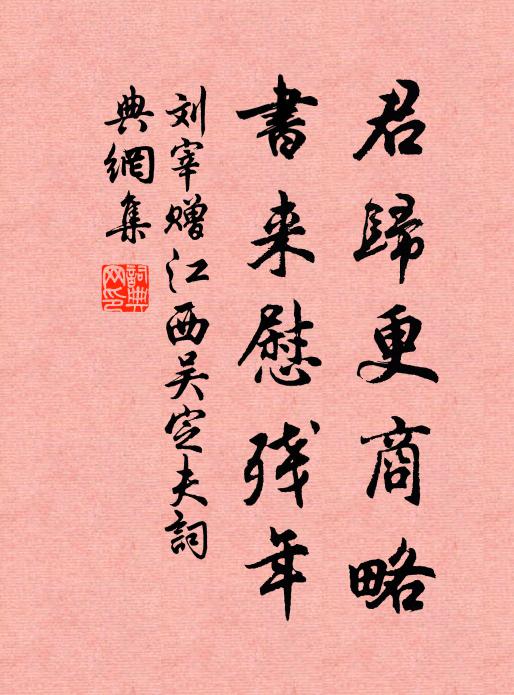 君歸更商略
書来慰残年
刘宰赠江西吴定夫詞
典網集
詞典
网印